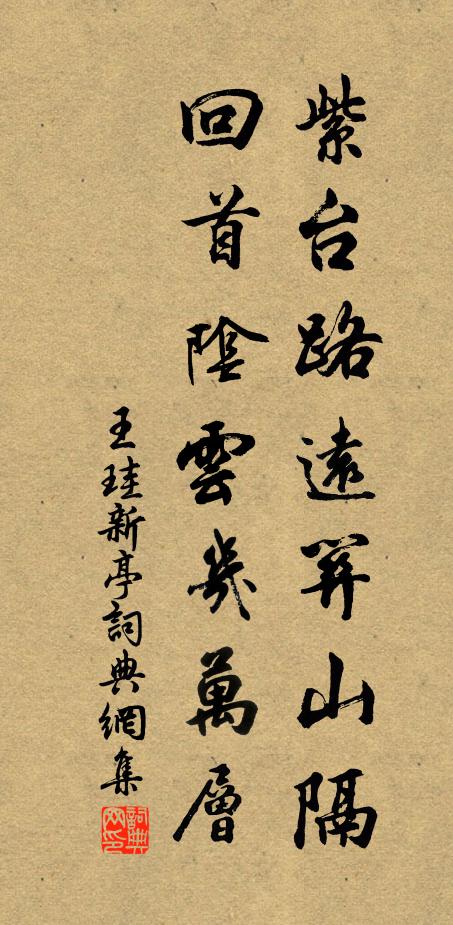 紫台路遠関山隔
回首陰雲幾萬層
王珪新亭詞典網集
詞典网印